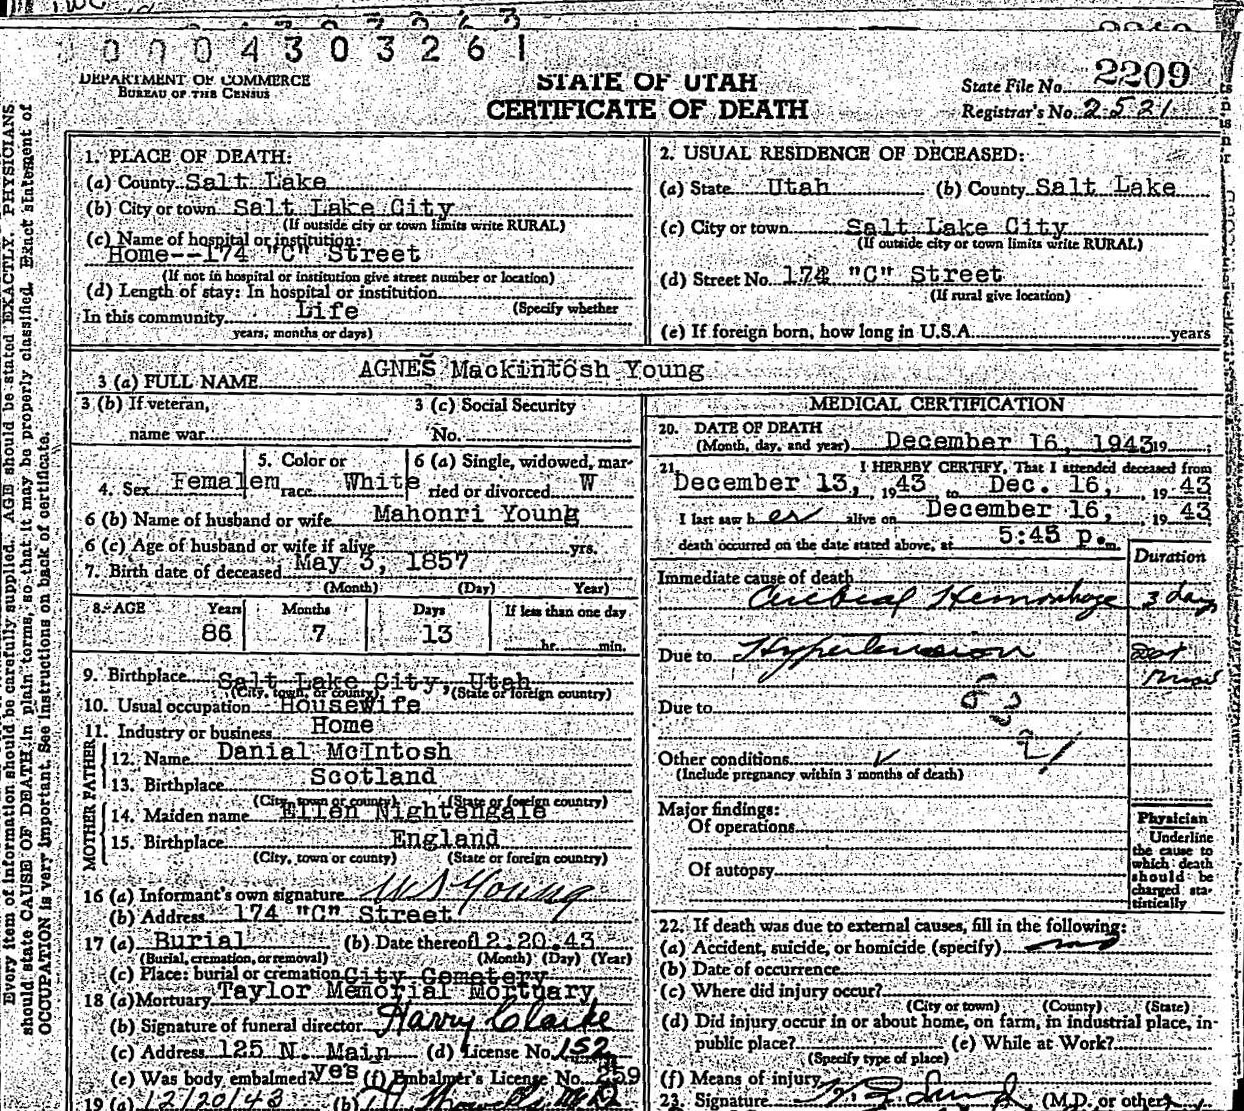 0004303261
DEPARTMENT OF COMMERCE
BUREAU OF THE CENSUS
STATE OF UTAH
CERTIFICATE OF DEATH
State File No. 2209
Registrar's No. 2521
Every item of information should be carefully supplied. AGE should be stated EXACTLY. PHYSICIANS
should state CAUSE OF DEATH in plain terms, so that it may be properly classified. Exact statement of
OCCUPATION is very important. See instructions on back of certificate.
1. PLACE OF DEATH:
(a) County Salt Lake
(b) City or town Salt Lake City
(If outside city or town limits write RURAL)
(c) Name of hospital or institution:
Home--174 "C" Street
(If not in hospital or institution give street number or location)
(d) Length of stay: In hospital or institution
(Specify whether
In this community Life
years, months or days)
2. USUAL RESIDENCE OF DECEASED:
(a) State Utah (b) County Salt Lake
(c) City or town Salt Lake City
(If outside city or town limits write RURAL)
(d) Street No. 174 "C" Street
(If rural give location)
(e) If foreign born, how long in U.S.A. years
3 (a) FULL NAME AGNES Mackintosh Young
3 (b) If veteran,
name war
3 (c) Social Security
No.
4. Sex Female
5. Color or
race White
6 (a) Single, widowed, mar-
ried or divorced W
6 (b) Name of husband or wife Mahonri Young
6 (c) Age of husband or wife if alive yrs.
7. Birth date of deceased May 3, 1857
(Month) (Day) Year)
8. AGE Years Months Days If less than one day
86 7 13 hr. min.
9. Birthplace Salt Lake City, Utah
(City, town, or county) (State or foreign country)
10. Usual occupation Housewife
11. Industry or business Home
FATHER
12. Name Danial McIntosh
13. Birthplace Scotland
(City, town or county) (State or foreign country)
MOTHER
14. Maiden name Ellen Nightengale
15. Birthplace England
(City, town or county) (State or foreign country)
16 (a) Informant's own signature W S Young
(b) Address 174 "C" Street
17 (a) Burial (b) Date thereof 12.20.43
(Burial, cremation, or removal) (Month) (Day) (Year)
(c) Place: burial or cremation City Cemetery
18 (a) Mortuary Taylor Memorial Mortuary
(b) Signature of funeral director Harry Clarke
(c) Address 125 N. Main (d) License No. 152
(e) Was body embalmed? yes (f) Embalmer's License No. 259
19 (a) 12/20/43 (b)
MEDICAL CERTIFICATION
20. DATE OF DEATH
(Month, day, and year) December 16, 1943 19
21. I HEREBY CERTIFY, That I attended deceased from
December 13, 1943 to Dec. 16, 1943
I last saw h er alive on December 16, 1943
death occurred on the date stated above, at 5:45 p. m.
Duration
Immediate cause of death
Cerebral Hemorrhage 3 days
Due to Hypertension
Due to
83 21
Other conditions
(Include pregnancy within 3 months of death)
Major findings:
Of operations
Of autopsy
Physician
Underline
the cause to
which death
should be
charged sta-
tistically
22. If death was due to external causes, fill in the following:
(a) Accident, suicide, or homicide (specify) no
(b) Date of occurrence
(c) Where did injury occur?
(City or town) (County) (State)
(d) Did injury occur in or about home, on farm, in industrial place, in-
public place? (e) While at Work?
(Specify type of place)
(f) Means of injury
23. Signature (M.D. or other)